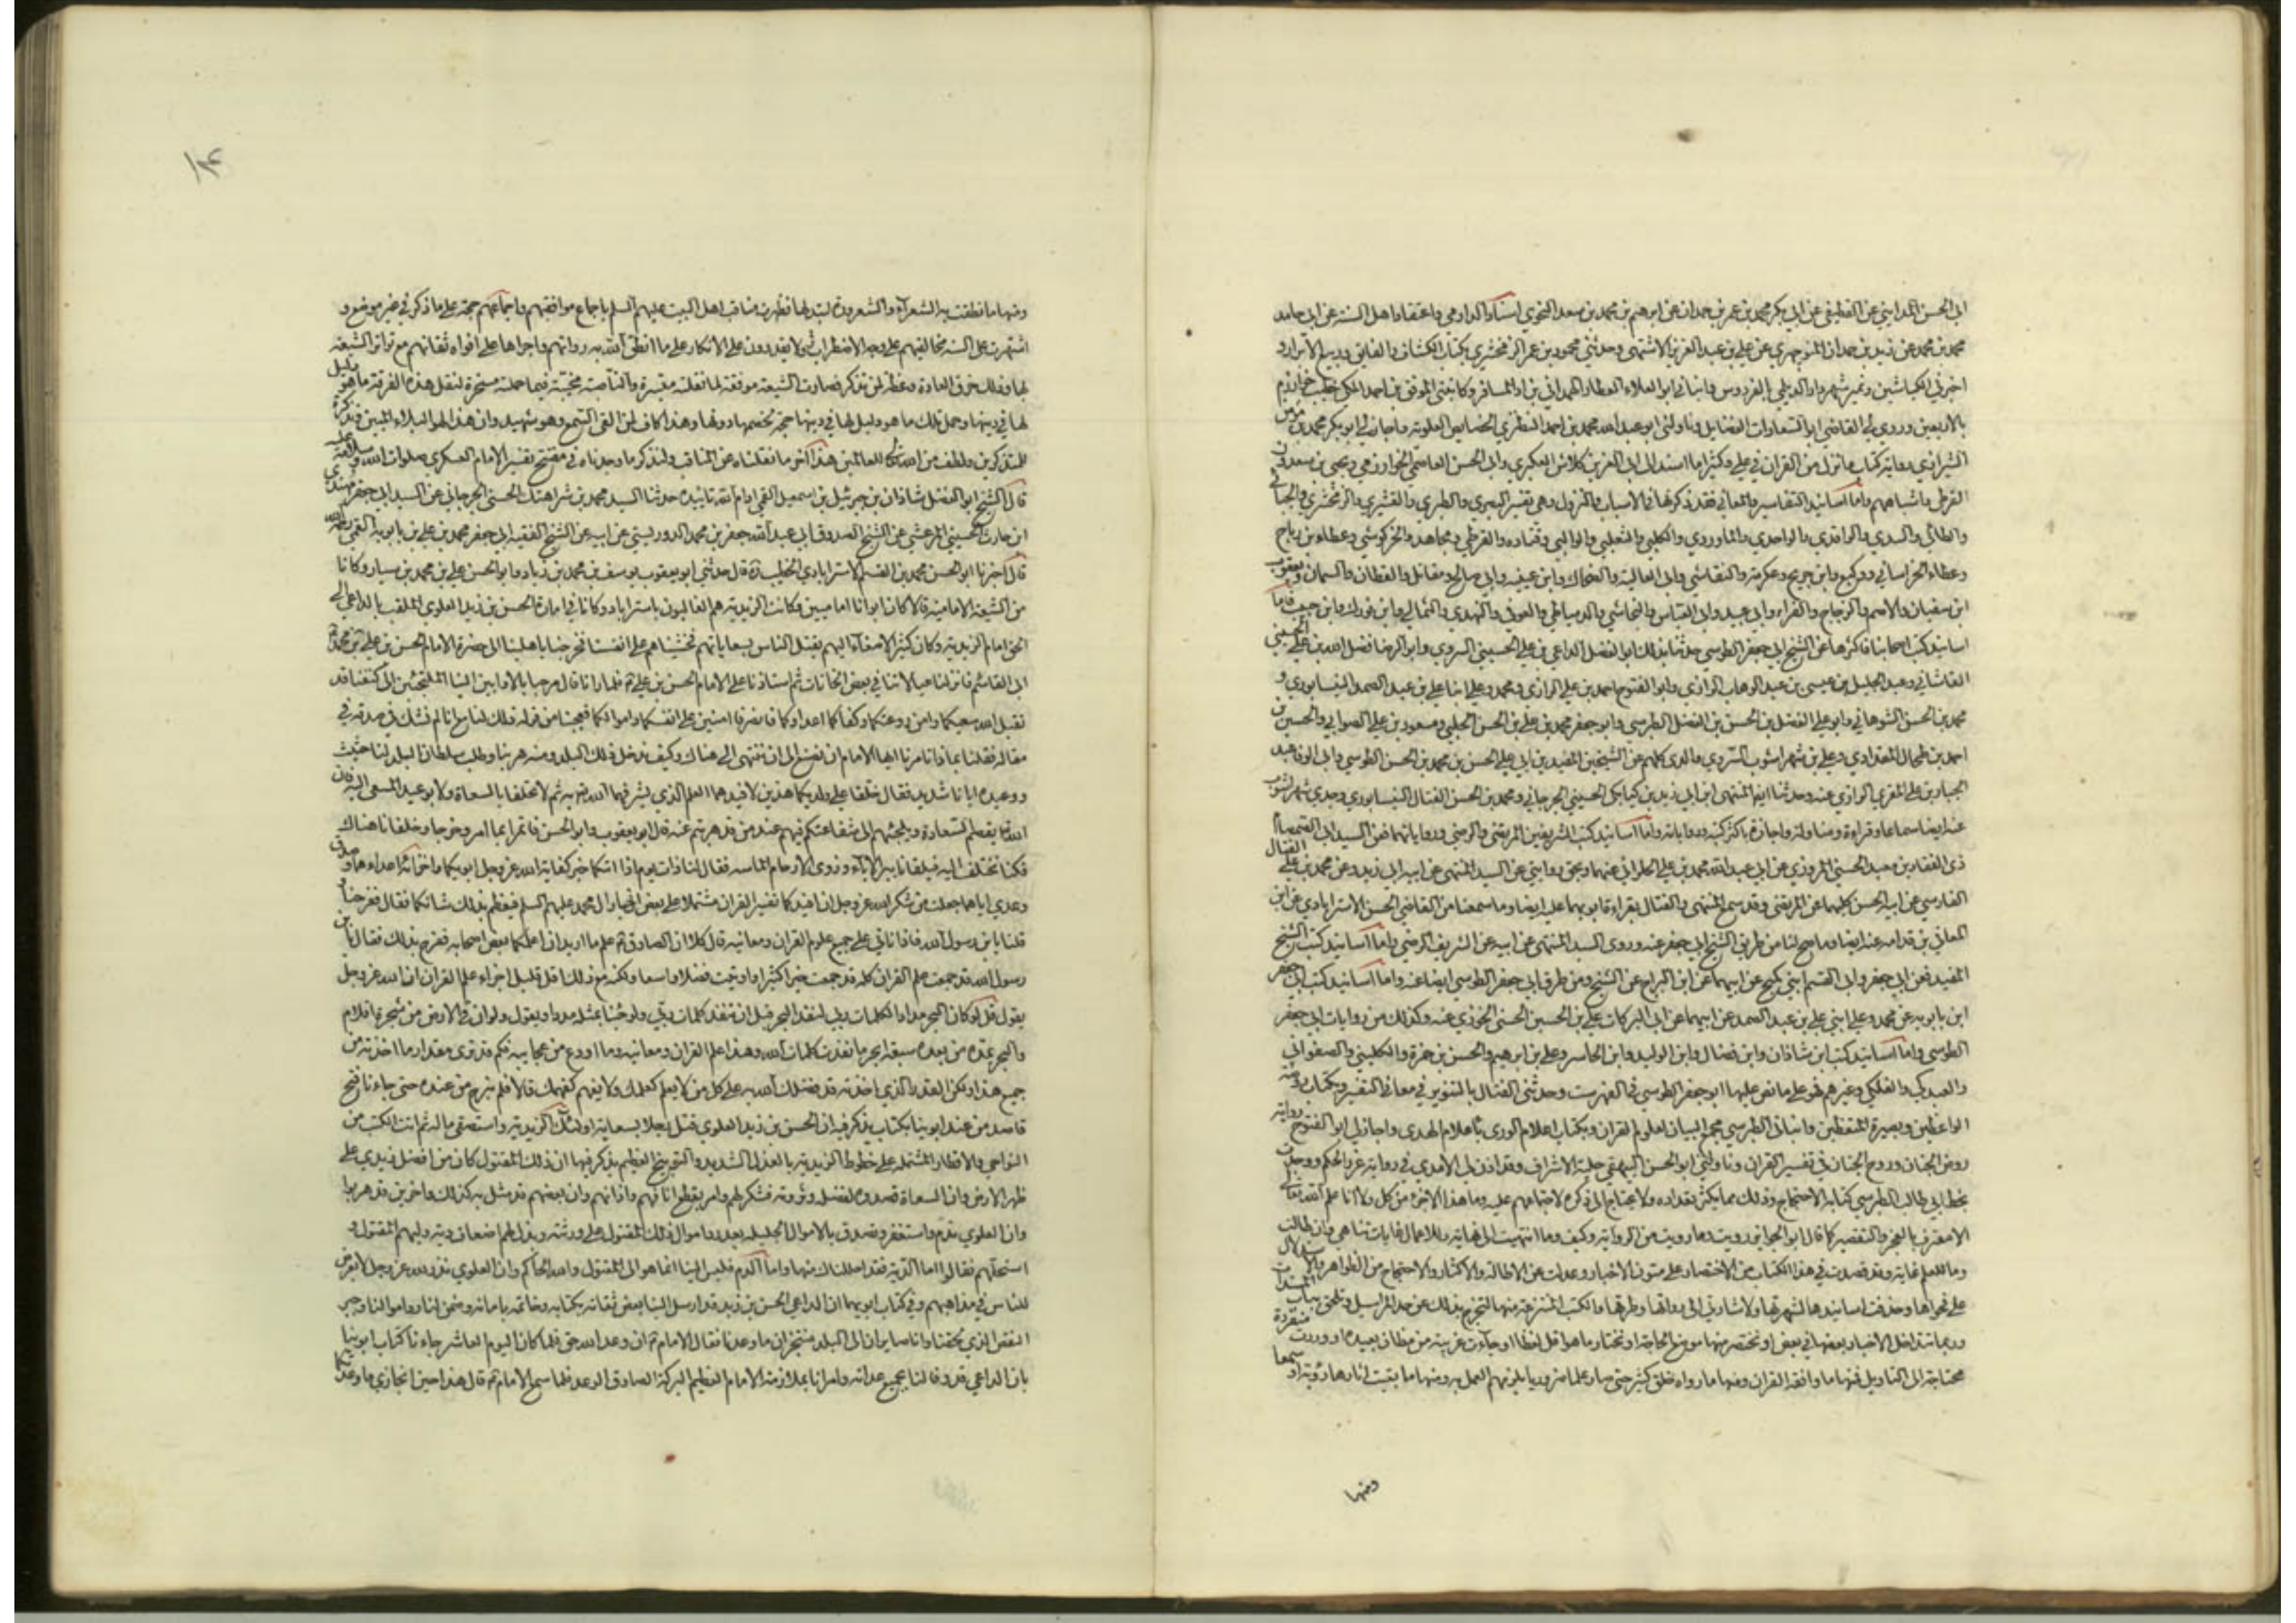 ابي الحسن المدايني عن القطيفي عن ابي بكر محمد بن عمر بن حمدان عن ابرهيم بن محمد بن سعد النحوي اسناد الدارمي واعتقاد اهل السنه عن ابي حامد
محمد بن محمد عن زيد بن حمدان المنوچهري عن علي بن عبد العزيز الاشتهي وحدثني محمود بن عمر الزمخشري بكتاب الكشاف والفايق وربيع الابرار و
اخبرني الكياشين ونمير شهردار الديلمي بالفردوس وانباني ابو العلاء العطار الهمداني بزاد المسافر وكاتبني الموفق بن احمد المكي خطيب خوارزم
بالاربعين وروى لي القاضي ابو السعادات الفضايل وناولني ابو عبد الله محمد بن احمد النطنزي الخصايص العلوية واجاز لي ابو بكر محمد بن مؤمن
الشيرازي رواية كتاب ما نزل من القران في علي وكثيرا ما اسند الى ابي العز بن كلاش العكبري وابي الحسن العاصمي الخوارزمي ويحيى بن سعدون
القرطبي واشباههم واما اسانيد التفاسير والمعاني فقد ذكرتها في الاسباب والنزول وهي تفسير البصري والطبري والقشيري والزمخشري والجبائي
والطائي والسدي والواقدي والواحدي والماوردي والكلبي والثعلبي والوالبي وقتاده والقرظي ومجاهد والخركوشي وعطاء بن رباح
وعطاء الخراساني ووكيع وابن جريج وعكرمة والنقاشي وابي العالية والضحاك وابن عيينه وابي صالح ومقاتل والقطان والسمان ويعقوب
ابن سفيان والاصم والزجاج والفراء وابي عبيد وابي العباس والنجاشي والدمياطي والعوفي والنهدي والثمالي وابن فورك وابن حبيب فاما
اسانيد كتب اصحابنا فاكثرها عن الشيخ ابي جعفر الطوسي حدثنا بذلك ابو الفضل الداعي بن علي الحسيني السروي وابو الرضا فضل الله بن علي الحسيني
القاشاني وعبد الجليل بن عيسى بن عبد الوهاب الرازي وابو الفتوح احمد بن علي الرازي ومحمد وعلي ابنا علي بن عبد الصمد النيسابوري و
محمد بن الحسن الشوهاني وابو علي الفضل بن الحسن بن الفضل الطبرسي وابو جعفر محمد بن علي بن الحسن الحلبي ومسعود بن علي الصوابي والحسين بن
احمد بن طحال المقدادي وعلي بن شهراشوب السروي والدي كلهم عن الشيخين المفيدين ابي علي الحسن بن محمد بن الحسن الطوسي وابي الوفا عبد
الجبار بن علي المقري الرازي عنه وحدثنا ايضا المنتهى ابن ابي زيد بن كيابكي الحسيني الجرجاني ومحمد بن الحسن الفتال النيسابوري وجدي شهراشوب
عنه ايضا سماعا وقراءة ومناولة واجازة باكثر كتبه ورواياته واما اسانيد كتب الشريفين المرتضى والرضي ورواياتهما فعن السيد ابي الصمصام
ذي الفقار بن معبد الحسني المروزي عن ابي عبد الله محمد بن علي الحلواني عنهما وبحق روايتي عن السيد المنتهى عن ابيه ابي زيد وعن محمد بن علي الفتال
الفارسي عن ابيه الحسن كليهما عن المرتضى وقد سمع المنتهى والفتال بقراءة ابويهما عليه ايضا وما سمعنا من القاضي الحسن الاسترابادي عن ابن
المعافي بن قدامه عنه ايضا وما صح لنا من طريق الشيخ ابي جعفر عنه وروى السيد المنتهى عن ابيه عن الشريف الرضي واما اسانيد كتب الشيخ
المفيد فعن ابي جعفر وابي القسم ابني كميح عن ابيهما عن ابن البراج عن الشيخ ومن طرق ابي جعفر الطوسي ايضا عنه واما اسانيد كتب ابي جعفر
ابن بابويه عن محمد وعلي ابني علي بن عبد الصمد عن ابيهما عن ابي البركات علي بن الحسين الحسني الخوزي عنه وكذلك من روايات ابي جعفر
الطوسي واما اسانيد كتب ابن شاذان وابن فضال وابن الوليد وابن الحاسر وعلي بن ابرهيم والحسن بن حمزة والكليني والصفواني
والعبدكي والفلكي وغيرهم فهو على ما نص عليها ابو جعفر الطوسي في الفهرست وحدثني الفتال بالتنوير في معاني التفسير وبكتاب روضة
الواعظين وبصيرة المتعظين وانباني الطبرسي بمجمع البيان لعلوم القران وبكتاب اعلام الورى باعلام الهدى واجاز لي ابو الفتوح رواية
روض الجنان وروح الجنان في تفسير القران وناولني ابو الحسن البيهقي حلية الاشراف وقد اذن لي الامدي في رواية غرر الحكم ووجدت
بخط ابي طالب الطبرسي كتابه الاحتجاج وذلك مما يكثر تعداده ولا يحتاج الى ذكره لاجتماعهم عليه وما هذا الا جزء من كل ولا انا علم الله تعالى
الا معترف بالعجز والتقصير كما قال ابو الجوايز رويت وما رويت من الرواية وكيف وما انتهيت الى نهايه وللاعمال غايات تناهى وان طالت
وما للعلم غايه وقد قصدت في هذا الكتاب من الاختصار على متون الاخبار وعدلت عن الاطالة والاكثار والاحتجاج من الظواهر والاستدلال
على فحواها وحذفت اسانيدها لشهرتها ولاشارتي الى رواتها وطرقها والكتب المنتزعة منها لتخرج بذلك عن حد المراسيل وتلحق بباب المسندات
وربما تتداخل الاخبار بعضها في بعض او نختصر منها موضع الحاجة او نختار ما هو اقل لفظا او جاءت غريبة من مظان بعيده او وردت منفردة
محتاجة الى التاويل فمنها ما وافقه القران ومنها ما رواه خلق كثير حتى صار علما ضروريا يلزمهم العمل به ومنها ما بقيت اثارها رؤية او سمعا
ومنها
١٣
ومنها ما نطقت به الشعراء والشعرورة لتبدلها فظهرت مناقب اهل البيت عليهم السلم باجماع موافقيهم واجماعهم حجة على ما ذكر في غير موضع و
اشتهرت على السنه مخالفيهم على وجه الاضطرار ولا يقدرون على الانكار على ما انطق الله به رواتهم واجراها على افواه ثقاتهم مع تواتر الشيعة
بها وذلك خرق العادة وعظة لمن تذكر فصارت الشيعة موفقة لما نقلته ميسرة والناصبة مخيبة فيما حملته مسخرة لنقل هذه الفرقة ما هو دليل
لها في دينها وحمل تلك ما هو دليل لها في دينها حجة لخصمها دونها وهذا كاف لمن القى السمع وهو شهيد وان هذا لهو البلاء المبين وتذكرة
للمتذكرين ولطف من الله تعالى للعالمين هذا آخر ما نقلناه عن المناقب ولنذكر ما وجدناه في مفتتح تفسير الامام العسكري صلوات الله وسلامه عليه
قال الشيخ ابو الفضل شاذان بن جبرئيل بن اسمعيل القمي ادام الله تاييده حدثنا السيد محمد بن شراهتك الحسني الجرجاني عن السيد ابي جعفر مهتدي
ابن حارث الحسيني المرعشي عن الشيخ الصدوق ابي عبد الله جعفر بن محمد الدوريستي عن ابيه عن الشيخ الفقيه ابي جعفر محمد بن علي بن بابويه القمي رحمه الله
قال اخبرنا ابو الحسن محمد بن القسم الاسترابادي الخطيب ره قال حدثني ابو يعقوب يوسف بن محمد بن زياد وابو الحسن علي بن محمد بن سيار وكانا
من الشيعة الامامية قالا كان ابوانا اماميين وكانت الزيدية هم الغالبون باستراباد وكانا في امارة الحسن بن زيد العلوي الملقب بالداعي الى
الحق امام الزيدية وكان كثير الاصغاء اليهم يقتل الناس بسعاياتهم فخشيناهم على انفسنا فخرجنا باهلينا الى حضرة الامام الحسن بن علي بن محمد
ابي القائم فانزلنا عيالاتنا في بعض الخانات ثم استاذنا على الامام الحسن بن علي فلما رانا قال مرحبا بالاوابين الينا الملتجئين الى كنفنا قد
تقبل الله سعيكما وامن روعتكما وكفاكما اعداءكما فانصرفا امنين على انفسكما واموالكما فعجبنا من قوله ذلك لنا مع انا لم نشك في صدقه في
مقاله فقلنا بماذا تامرنا ايها الامام ان نصنع الى ان ننتهي الى هناك وكيف ندخل ذلك البلد ومنه هربنا وطلب سلطان البلد لنا حثيث
ووعيده ايانا شديد فقال خلفا علي ولديكما هذين لافيدهما العلم الذي يشرفهما الله به ثم لا تحفلا بالسعاة ولا بوعيد المسعى اليه فان
الله يقصم السعادة ويلجئهم الى شفاعتكم فيهم عند من قد هربتم عنه قال ابو يعقوب وابو الحسن فاتمرا بما امر وخرجا وخلفانا هناك
فكنا نختلف اليه فيلقانا ببر الاباء وذوي الارحام الماسه فقال لنا ذات يوم اذا اتاكما خبر كفاية الله عز وجل ابويكما واخزائه اعداءهما وصدق
وعدي اياهما جعلت من شكر الله عز وجل ان افيدكما تفسير القران مشتملا على بعض اخبار ال محمد عليهم السلم فيعظم بذلك شانكما قال ففرحنا و
قلنا يا بن رسول الله فاذا ناتي على جميع علوم القران ومعانيه قال كلا ان الصادق علم ما اريد ان اعلمكما بعض اصحابه ففرح بذلك فقال يا بن
رسول الله قد جمعت علم القران كله قد جمعت خيرا كثيرا واوتيت فضلا واسعا ولكنه مع ذلك اقل قليل اجزاء علم القران ان الله عز وجل
يقول قل لو كان البحر مدادا لكلمات ربي لنفد البحر قبل ان تنفد كلمات ربي ولو جئنا بمثله مددا ويقول ولو ان ما في الارض من شجرة اقلام
والبحر يمده من بعده سبعة ابحر ما نفدت كلمات الله وهذا علم القران ومعانيه وما اودع من عجايبه فكم قد ترى مقدار ما اخذته من
جميع هذا ولكن القدر الذي اخذته قد فضلك الله به على كل من لا يعلم كعلمك ولا يفهم كفهمك قالا فلم نبرح من عنده حتى جاءنا فيج
قاصد من عند ابوينا بكتاب يذكر فيه ان الحسن بن زيد العلوي قتل رجلا بسعاية اولئك الزيدية واستصفى ماله ثم اتت الكتب من
النواحي والاقطار المشتملة على خطوط الزيدية بالعذل الشديد والتوبيخ العظيم يذكر فيها ان ذلك المقتول كان من افضل زيدي على
ظهر الارض وان السعاة قصدوه لفضله وثروته فشكر لهم وامر بقطع انافهم واذانهم وان بعضهم قد مثل به كذلك واخرين قد هربوا
وان العلوي ندم واستغفر وتصدق بالاموال الجليله بعد رد اموال ذلك المقتول على ورثته وبذل لهم اضعاف دية وليهم المقتول و
استحلهم فقالوا اما الدية فقد احللناك منها واما الدم فليس الينا انما هو الى المقتول والله الحاكم وان العلوي نذر لله عز وجل لا يعرض
للناس في مذاهبهم وفي كتاب ابويهما ان الداعي الحسن بن زيد قد ارسل الينا ببعض ثقاته بكتابه وخاتمه بامانه وضمن لنا رد اموالنا وجبر
النقص الذي لحقنا وانا صايران الى البلد متنجزان ما وعدنا فقال الامام ان وعد الله حق فلما كان اليوم العاشر جاءنا كتاب ابوينا
بان الداعي قد وفا لنا بجميع عداته وامرانا بملازمة الامام العظيم البركة الصادق الوعد فلما سمع الامام قال هذا حين انجازي ما وعدتكما